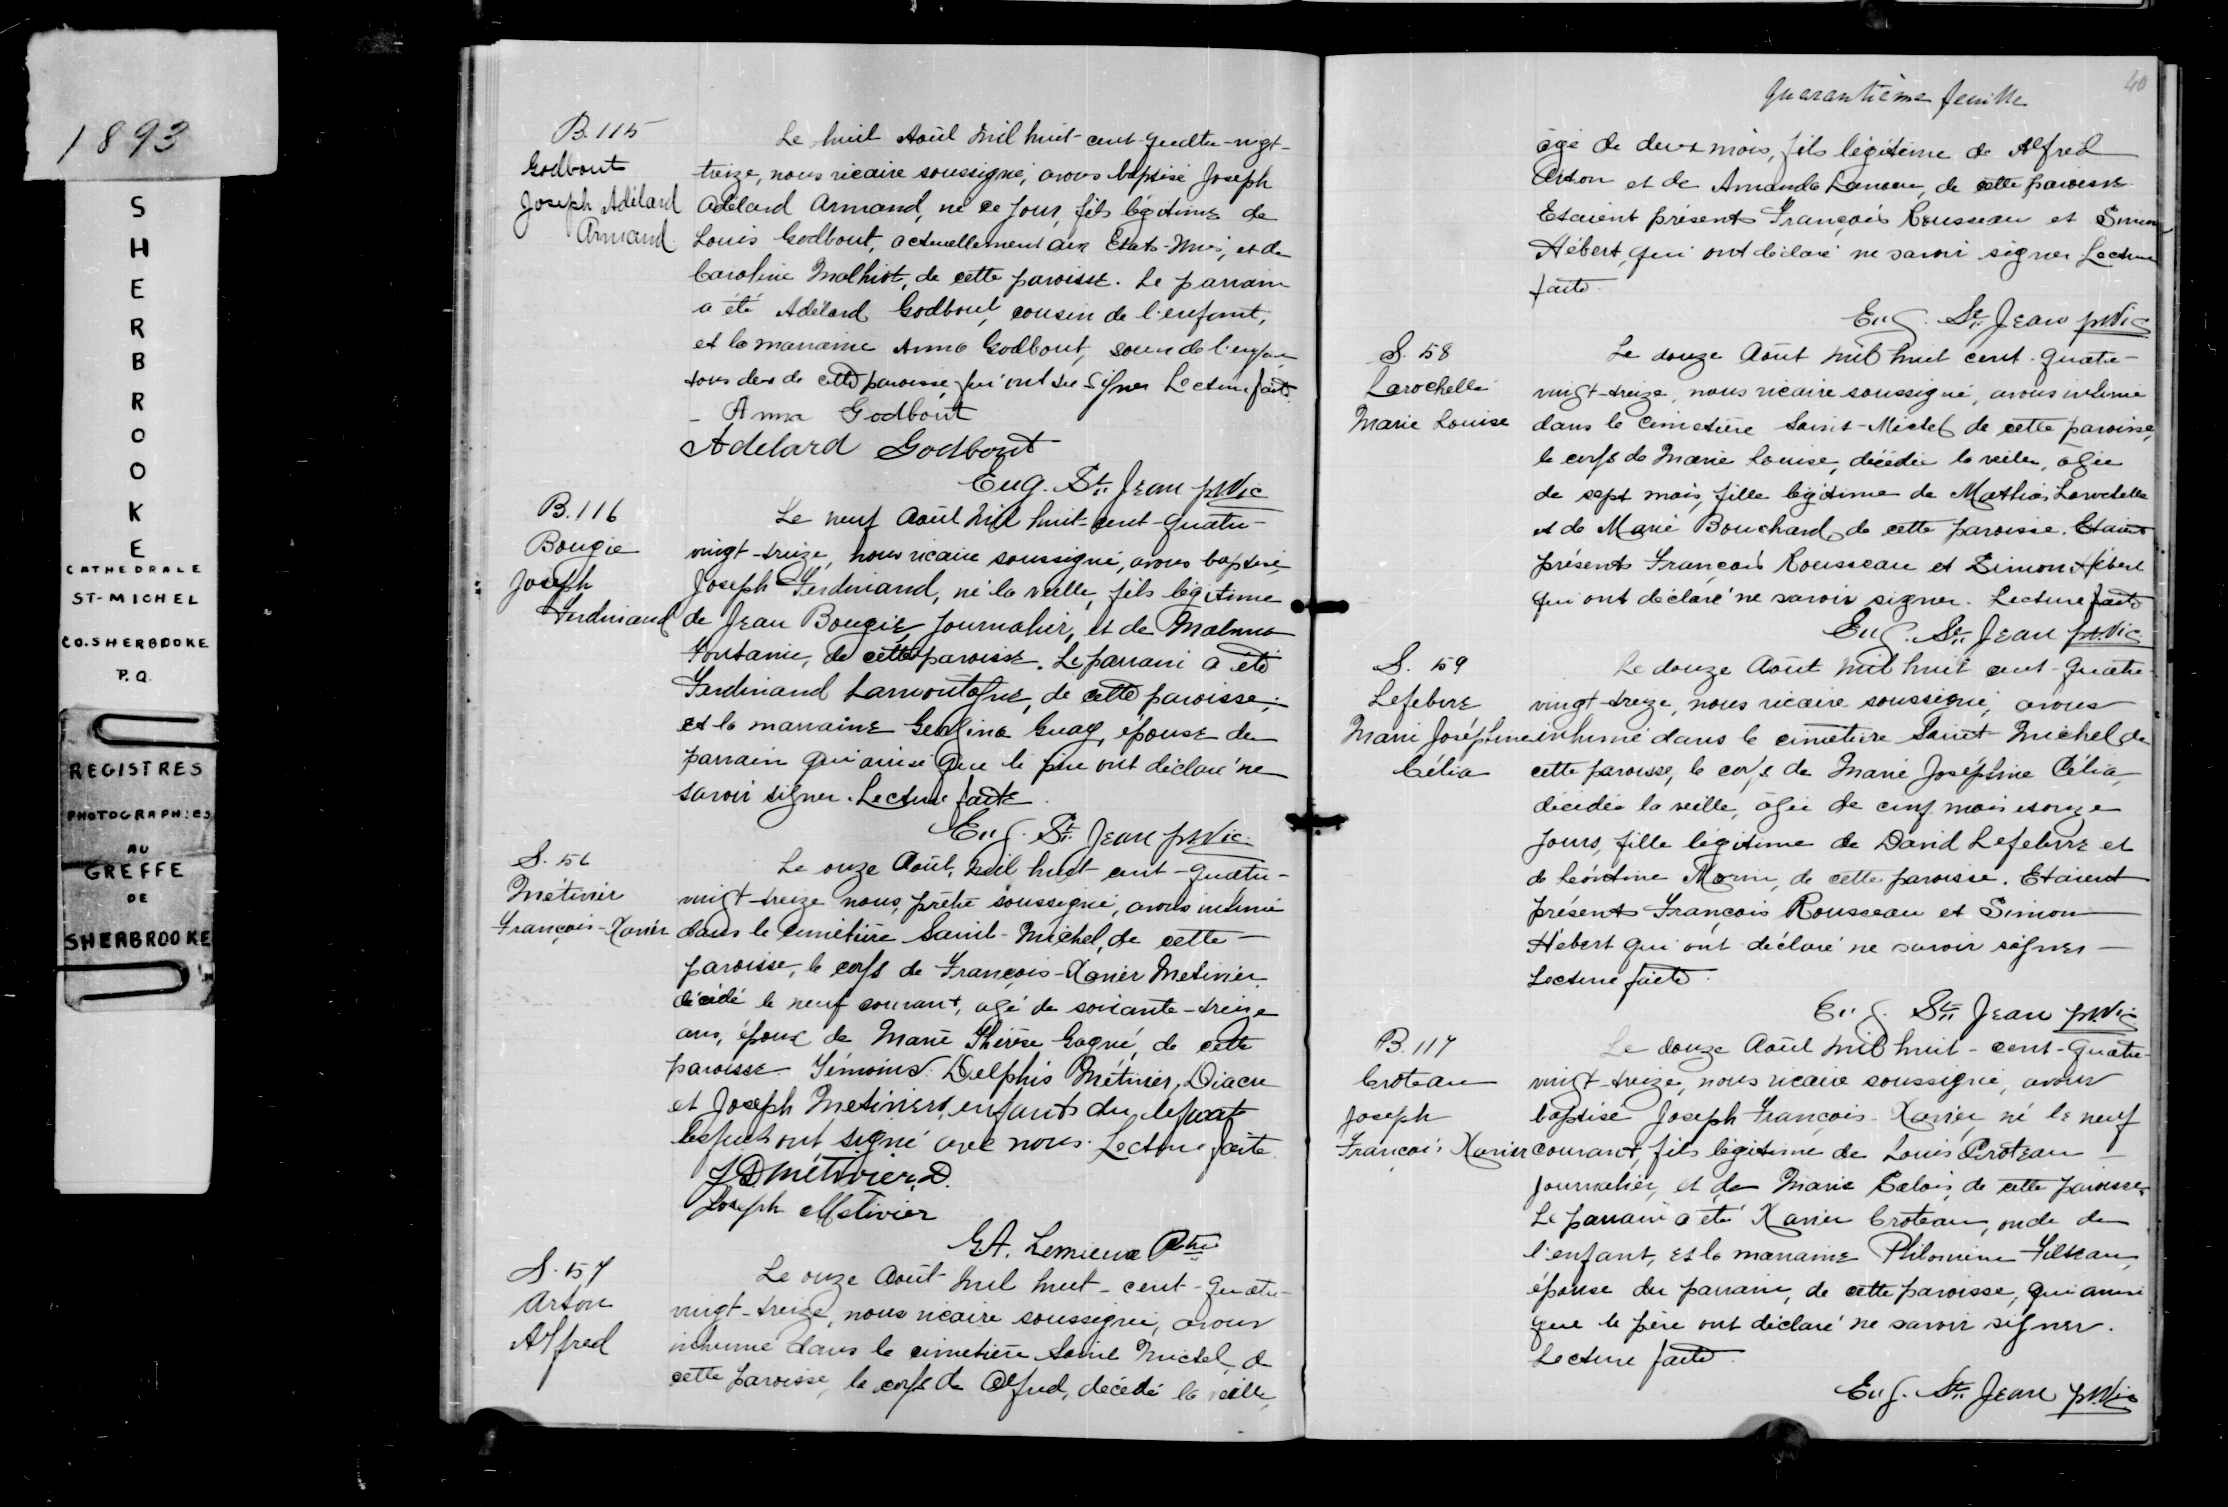 1893
SHERBROOKE
CATHEDRALE
ST-MICHEL
CO. SHERBROOKE
P.Q.
REGISTRES
PHOTOGRAPHIES
AU
GREFFE
DE
SHERBROOKE
B. 115
Godbout
Joseph Adélard
Armand.
Le huit Août mil huit-cent-quatre-vingt-
treize, nous vicaire soussigné, avons baptisé Joseph
Adélard Armand, né ce jour, fils légitime de
Louis Godbout, actuellement aux Etats-Unis, et de
Caroline Malhiot, de cette paroisse. Le parrain
a été Adélard Godbout, cousin de l'enfant,
et la marraine Anna Godbout, soeur de l'enfant
tous deux de cette paroisse, qui ont su signer Lecture faite.
- Anna Godbout
Adelard Godbout
Eug. St. Jean ptr Vic
B. 116
Bougie
Joseph
Ferdinand
Le neuf Août mil huit-cent-quatre-
vingt-treize, nous vicaire soussigné, avons baptisé,
Joseph Ferdinand, né la veille, fils légitime
de Jean Bougie, journalier, et de
de cette paroisse. Le parrain a été
Ferdinand Lamontagne, de cette paroisse,
et la marraine épouse du
parrain qui ainsi que le père ont déclaré ne
savoir signer. Lecture faite.
Eug. St. Jean ptr Vic.
S. 56
Métivier
François-Xavier
Le onze Août, mil huit-cent-quatre-
vingt-treize nous, prêtre soussigné, avons inhumé
dans le cimetière Saint-Michel, de cette
paroisse, le corps de François-Xavier Metivier,
décédé le neuf courant, agé de soixante-treize
ans, époux de Marie Thérèse Gagné, de cette
paroisse Témoins: Delphis Métivier, Diacre
et Joseph Metiviers, enfants du defunt
lesquels ont signé avec nous. Lecture faite.
J D Métivier, D.
Joseph Metivier
G A. Lemieux Ptre
S. 57
Arton
Alfred
Le onze Août mil huit-cent-quatre-
vingt-treize, nous vicaire soussigné, avons
inhumé dans le cimetière Saint Michel, de
cette paroisse, le corps de Alfred, décédé la veille,
Quarantième feuille
40
âgé de deux mois, fils légitime de Alfred
Arton et de Amanda de cette paroisse.
Etaient présents François Rousseau et Simon
Hébert, qui ont déclaré ne savoir signer Lecture
faite.
Eug. St. Jean ptr Vic
S. 58
Larochelle
Marie Louise
Le douze Août mil huit cent-quatre-
vingt-treize, nous vicaire soussigné, avons inhumé
dans le cimetière Saint-Michel de cette paroisse,
le corps de Marie Louise, décédée la veille, agée
de sept mois, fille légitime de Mathias Larochelle
et de Marie Bouchard, de cette paroisse. Etaient
présents François Rousseau et Simon Hébert
qui ont déclaré ne savoir signer. Lecture faite
Eug. St. Jean ptr. Vic.
S. 59
Lefebvre
Marie Joséphine
Célia
Le douze Août mil huit cent-quatre-
vingt-treize, nous vicaire soussigné, avons
inhumé dans le cimetière Saint-Michel de
cette paroisse, le corps de Marie Joséphine Célia,
décédée la veille, âgée de cinq mois et onze
jours, fille légitime de David Lefebvre et
de Léontine Morin, de cette paroisse. Etaient
présents François Rousseau et Simon
Hébert qui ont déclaré ne savoir signer -
Lecture faite.
Eug. St. Jean ptr. Vic
B. 117
Croteau
Joseph
François Xavier
Le douze Août mil huit-cent-quatre-
vingt-treize, nous vicaire soussigné, avons
baptisé Joseph François-Xavier né le neuf
courant, fils légitime de Louis Croteau -
journalier, et de Marie de cette paroisse.
Le parrain a été Xavier Croteau, oncle de
l'enfant, et la marraine Philomène
épouse du parrain, de cette paroisse, qui ainsi
que le père ont déclaré ne savoir signer.
Lecture faite.
Eug. St. Jean ptr. Vic